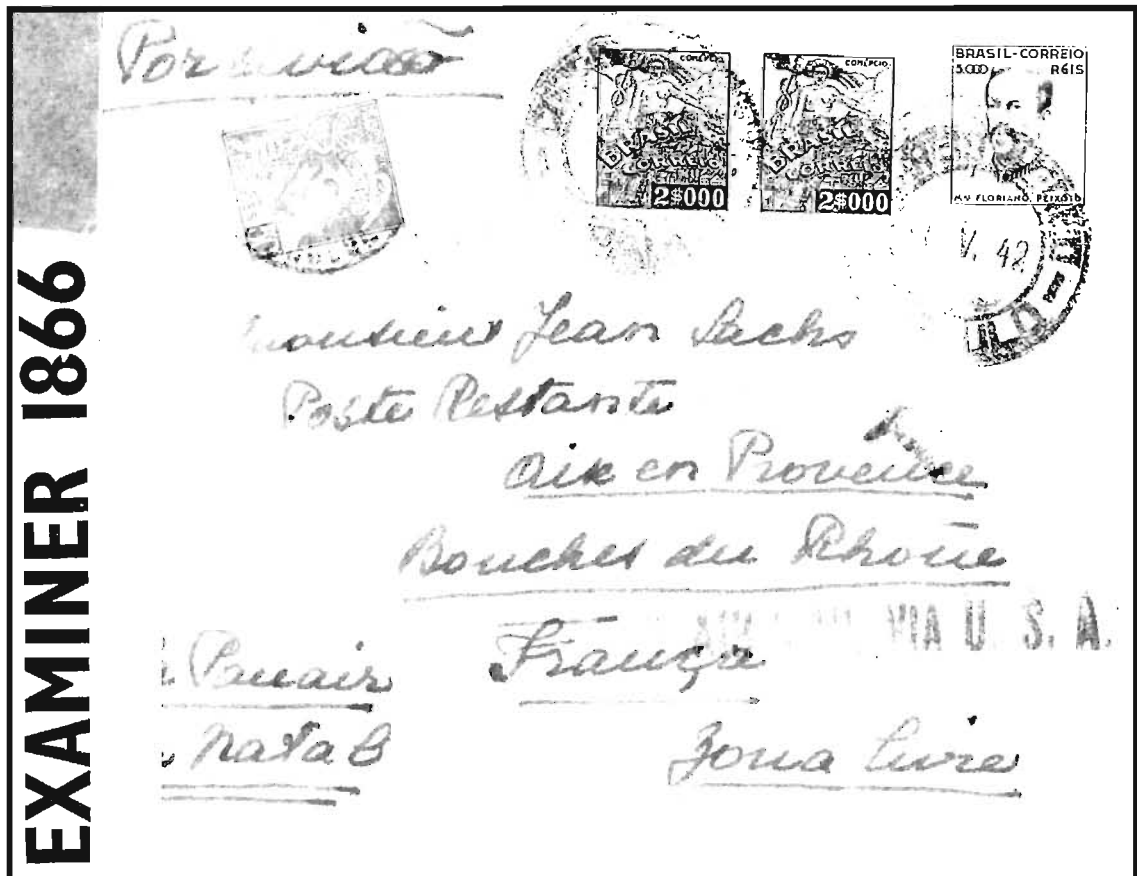 Por avião
COMÉRCIO
BRASIL
CORREIO
2$000
COMÉRCIO
BRASIL
CORREIO
2$000
BRASIL-CORREIO
5.000 RÉIS
FLORIANO PEIXOTO
V. 42
Monsieur Jean Sachs
Poste Restante
Aix en Provence
Bouches du Rhône
França
Zona livre
VIA U. S. A.
Panair
Natal
EXAMINER 1866